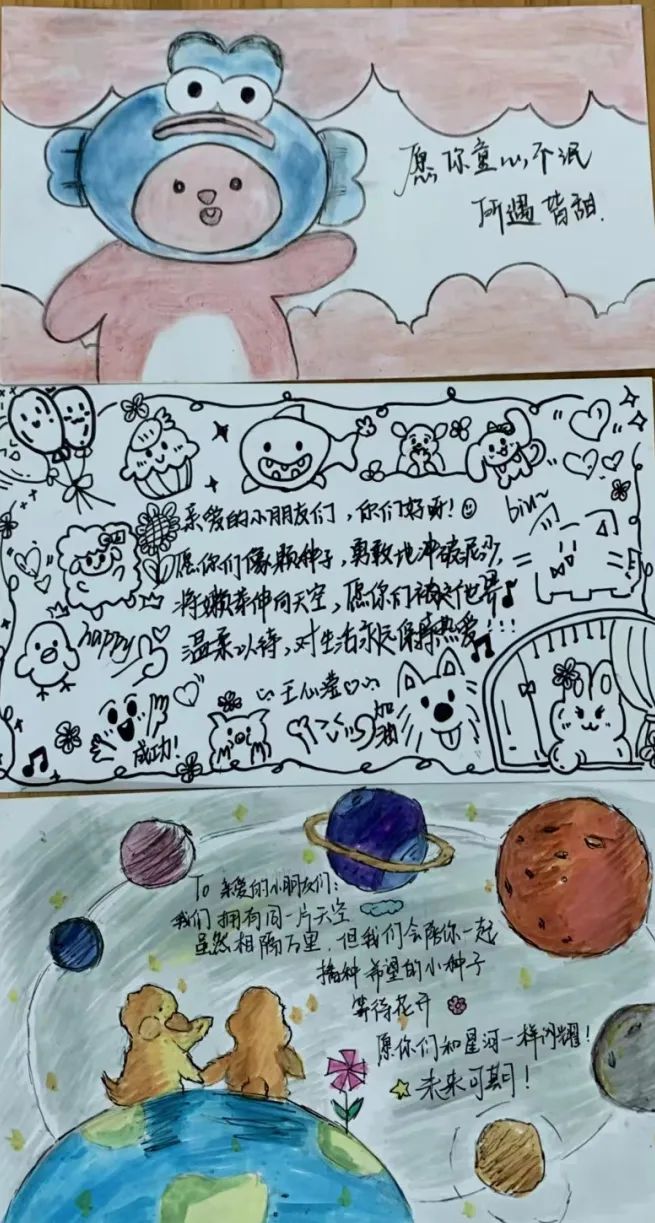 愿你童心不泯
所遇皆甜.
亲爱的小朋友们，你们好呀！
愿你们像颗种子，勇敢地冲破泥沙，
将嫩芽伸向天空，愿你们被这世界
温柔以待，对生活永远保持热爱!!!
王心滢
biu~
happy
成功!
加油
To 亲爱的小朋友们：
我们拥有同一片天空
虽然相隔万里，但我们会陪你一起
播种希望的小种子
等待花开
愿你们和星河一样闪耀！
未来可期！